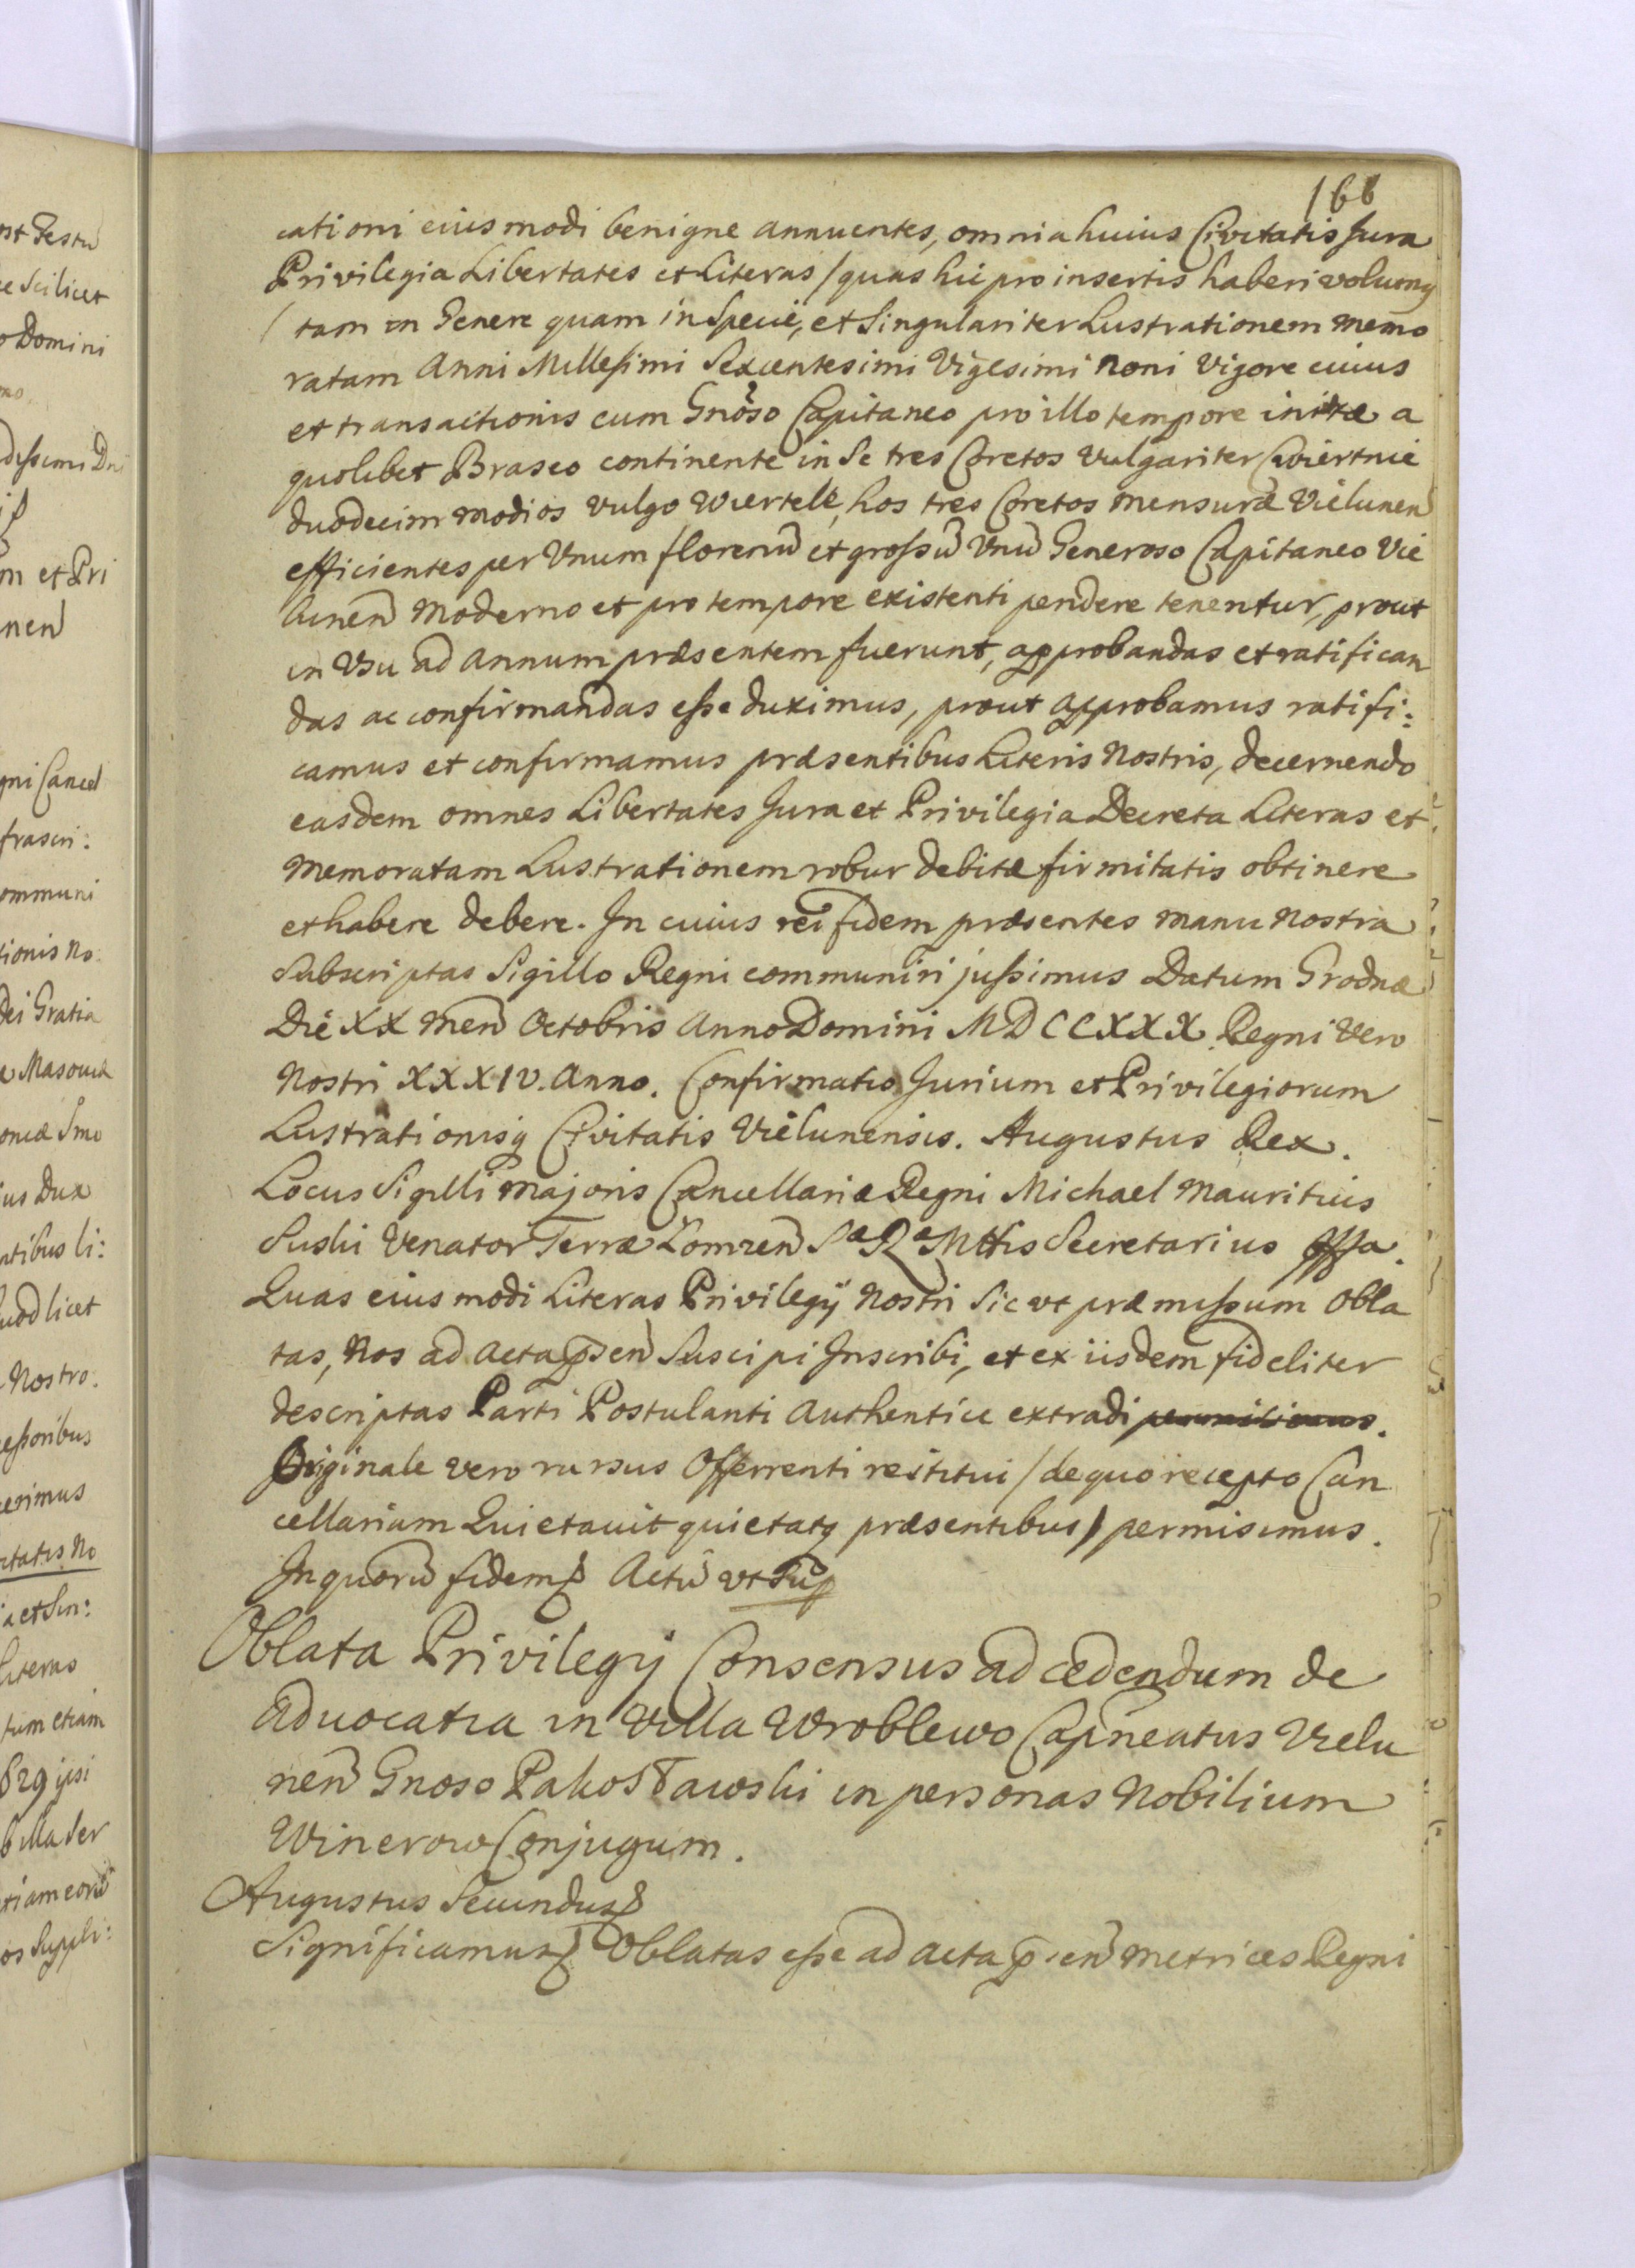 166
cationi eiusmodi benigne annuentes, omnia huius Civitatis Jura
Privilegia Libertates et Literas /quas hic pro insertis haberi volumꝰ
/ tam in Genere quam in Specie, et Singulariter Lustrationem memo
ratam Anni Millesimi Sexcentesimi Vigesimi Noni Vigore cuius
et transactionis cum Gnoso Capitaneo pro illo tempore initæ a
quolibet Braseo continente in Se tres Coretos Vulgariter Cwiertnie
duodecim modios vulgo Wiertele, hos tres Coretos mensuræ Vielunen
efficientes per Vnum florenū et grossū Vnū Generoso Capitaneo Vie
lunen Moderno et pro tempore existenti pendere tenentur, prout
in Vsu ad Annum præsentem fuerunt, approbandas et ratifican
das ac confirmandas esse duximus, prout approbamus ratifi:
camus et confirmamus præsentibus Literis Nostris, decernendo
easdem omnes Libertates Jura et Privilegia Decreta Literas et
Memoratam Lustrationem robur debitæ firmitatis obtinere
et habere debere. In cuius rei fidem præsentes manu Nostra
Subscriptas Sigillo Regni communiri jussimus Datum Grodnæ
Die XX Men Octobris Anno Domini MDCCXXX Regni Vero
Nostri XXXIV. Anno. Confirmatio Jurium et Privilegiorum
Lustrationisq Civitatis Vielunensis. Augustus Rex.
Locus Sigilli Majoris Cancellariæ Regni Michael Mauritius
Suski Venator Terræ Łomzen Sæ Ræ Mttis Secretarius
Quas eiusmodi Literas Privilegij Nostri Sic ut præmissum Obla
tas, Nos ad Acta p̄sen Suscipi Inscribi, et ex iisdem fideliter
descriptas Parti Postulanti Authentice extradi permisimus.
Originale vero rursus Offerrenti restitui /de quo recepto Can
cellariam Quietavit quietatq præsentibus/ permisimus.
In quorū fidem Actū ut Sup
Oblata Privilegij Consensus ad cedendum de
Advocatia in Villa Wroblewo Capneatus Vielu
nen Gnoso Pakosławski in personas Nobilium
Winerow Conjugum.
Augustus Secundus
Significamus Oblatas esse ad Acta p̄sen Metrices Regni